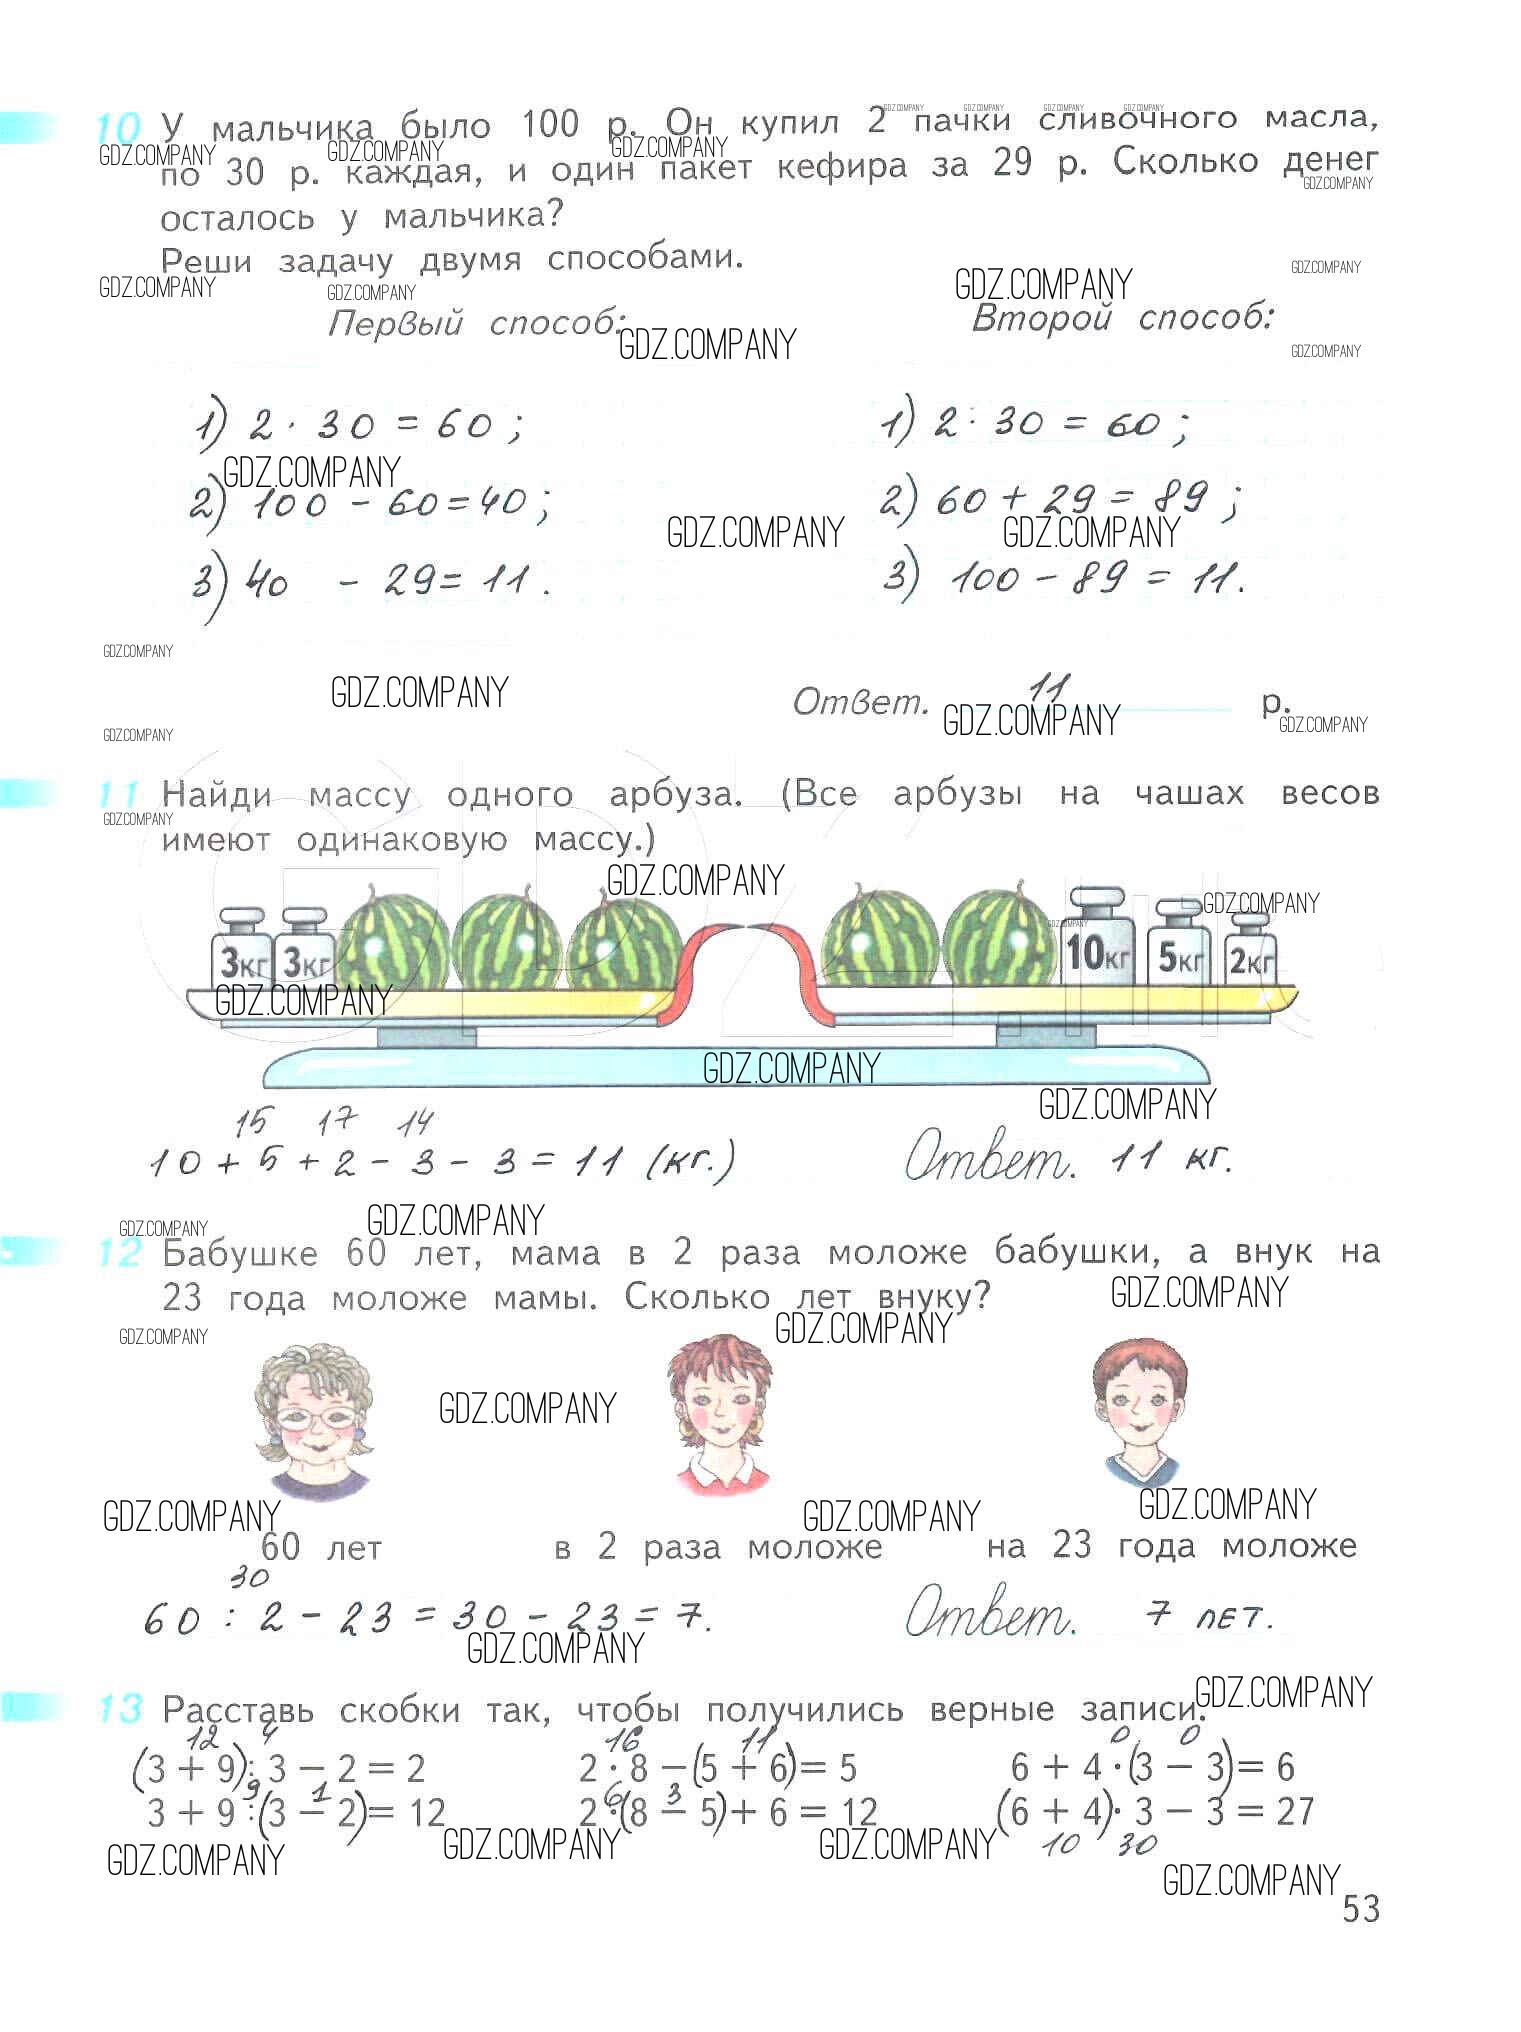 10 У мальчика было 100 р. Он купил 2 пачки сливочного масла,
по 30 р. каждая, и один пакет кефира за 29 р. Сколько денег
осталось у мальчика?
Реши задачу двумя способами.
Первый способ: Второй способ:
1) 2 · 30 = 60 ; 1) 2 · 30 = 60 ;
2) 100 - 60 = 40 ; 2) 60 + 29 = 89 ;
3) 40 - 29 = 11 . 3) 100 - 89 = 11.
Ответ. 11 р.
11 Найди массу одного арбуза. (Все арбузы на чашах весов
имеют одинаковую массу.)
3кг 3кг 10кг 5кг 2кг
15 17 14
10 + 5 + 2 - 3 - 3 = 11 (кг.) Ответ. 11 кг.
12 Бабушке 60 лет, мама в 2 раза моложе бабушки, а внук на
23 года моложе мамы. Сколько лет внуку?
60 лет в 2 раза моложе на 23 года моложе
30
60 : 2 - 23 = 30 - 23 = 7. Ответ. 7 лет.
13 Расставь скобки так, чтобы получились верные записи.
12 4 16 11 0 0
(3 + 9) : 3 − 2 = 2 2 · 8 − (5 + 6) = 5 6 + 4 · (3 − 3) = 6
9 1 6 3
3 + 9 : (3 − 2) = 12 2 · (8 − 5) + 6 = 12 (6 + 4) · 3 − 3 = 27
10 30
53
GDZ.COMPANY